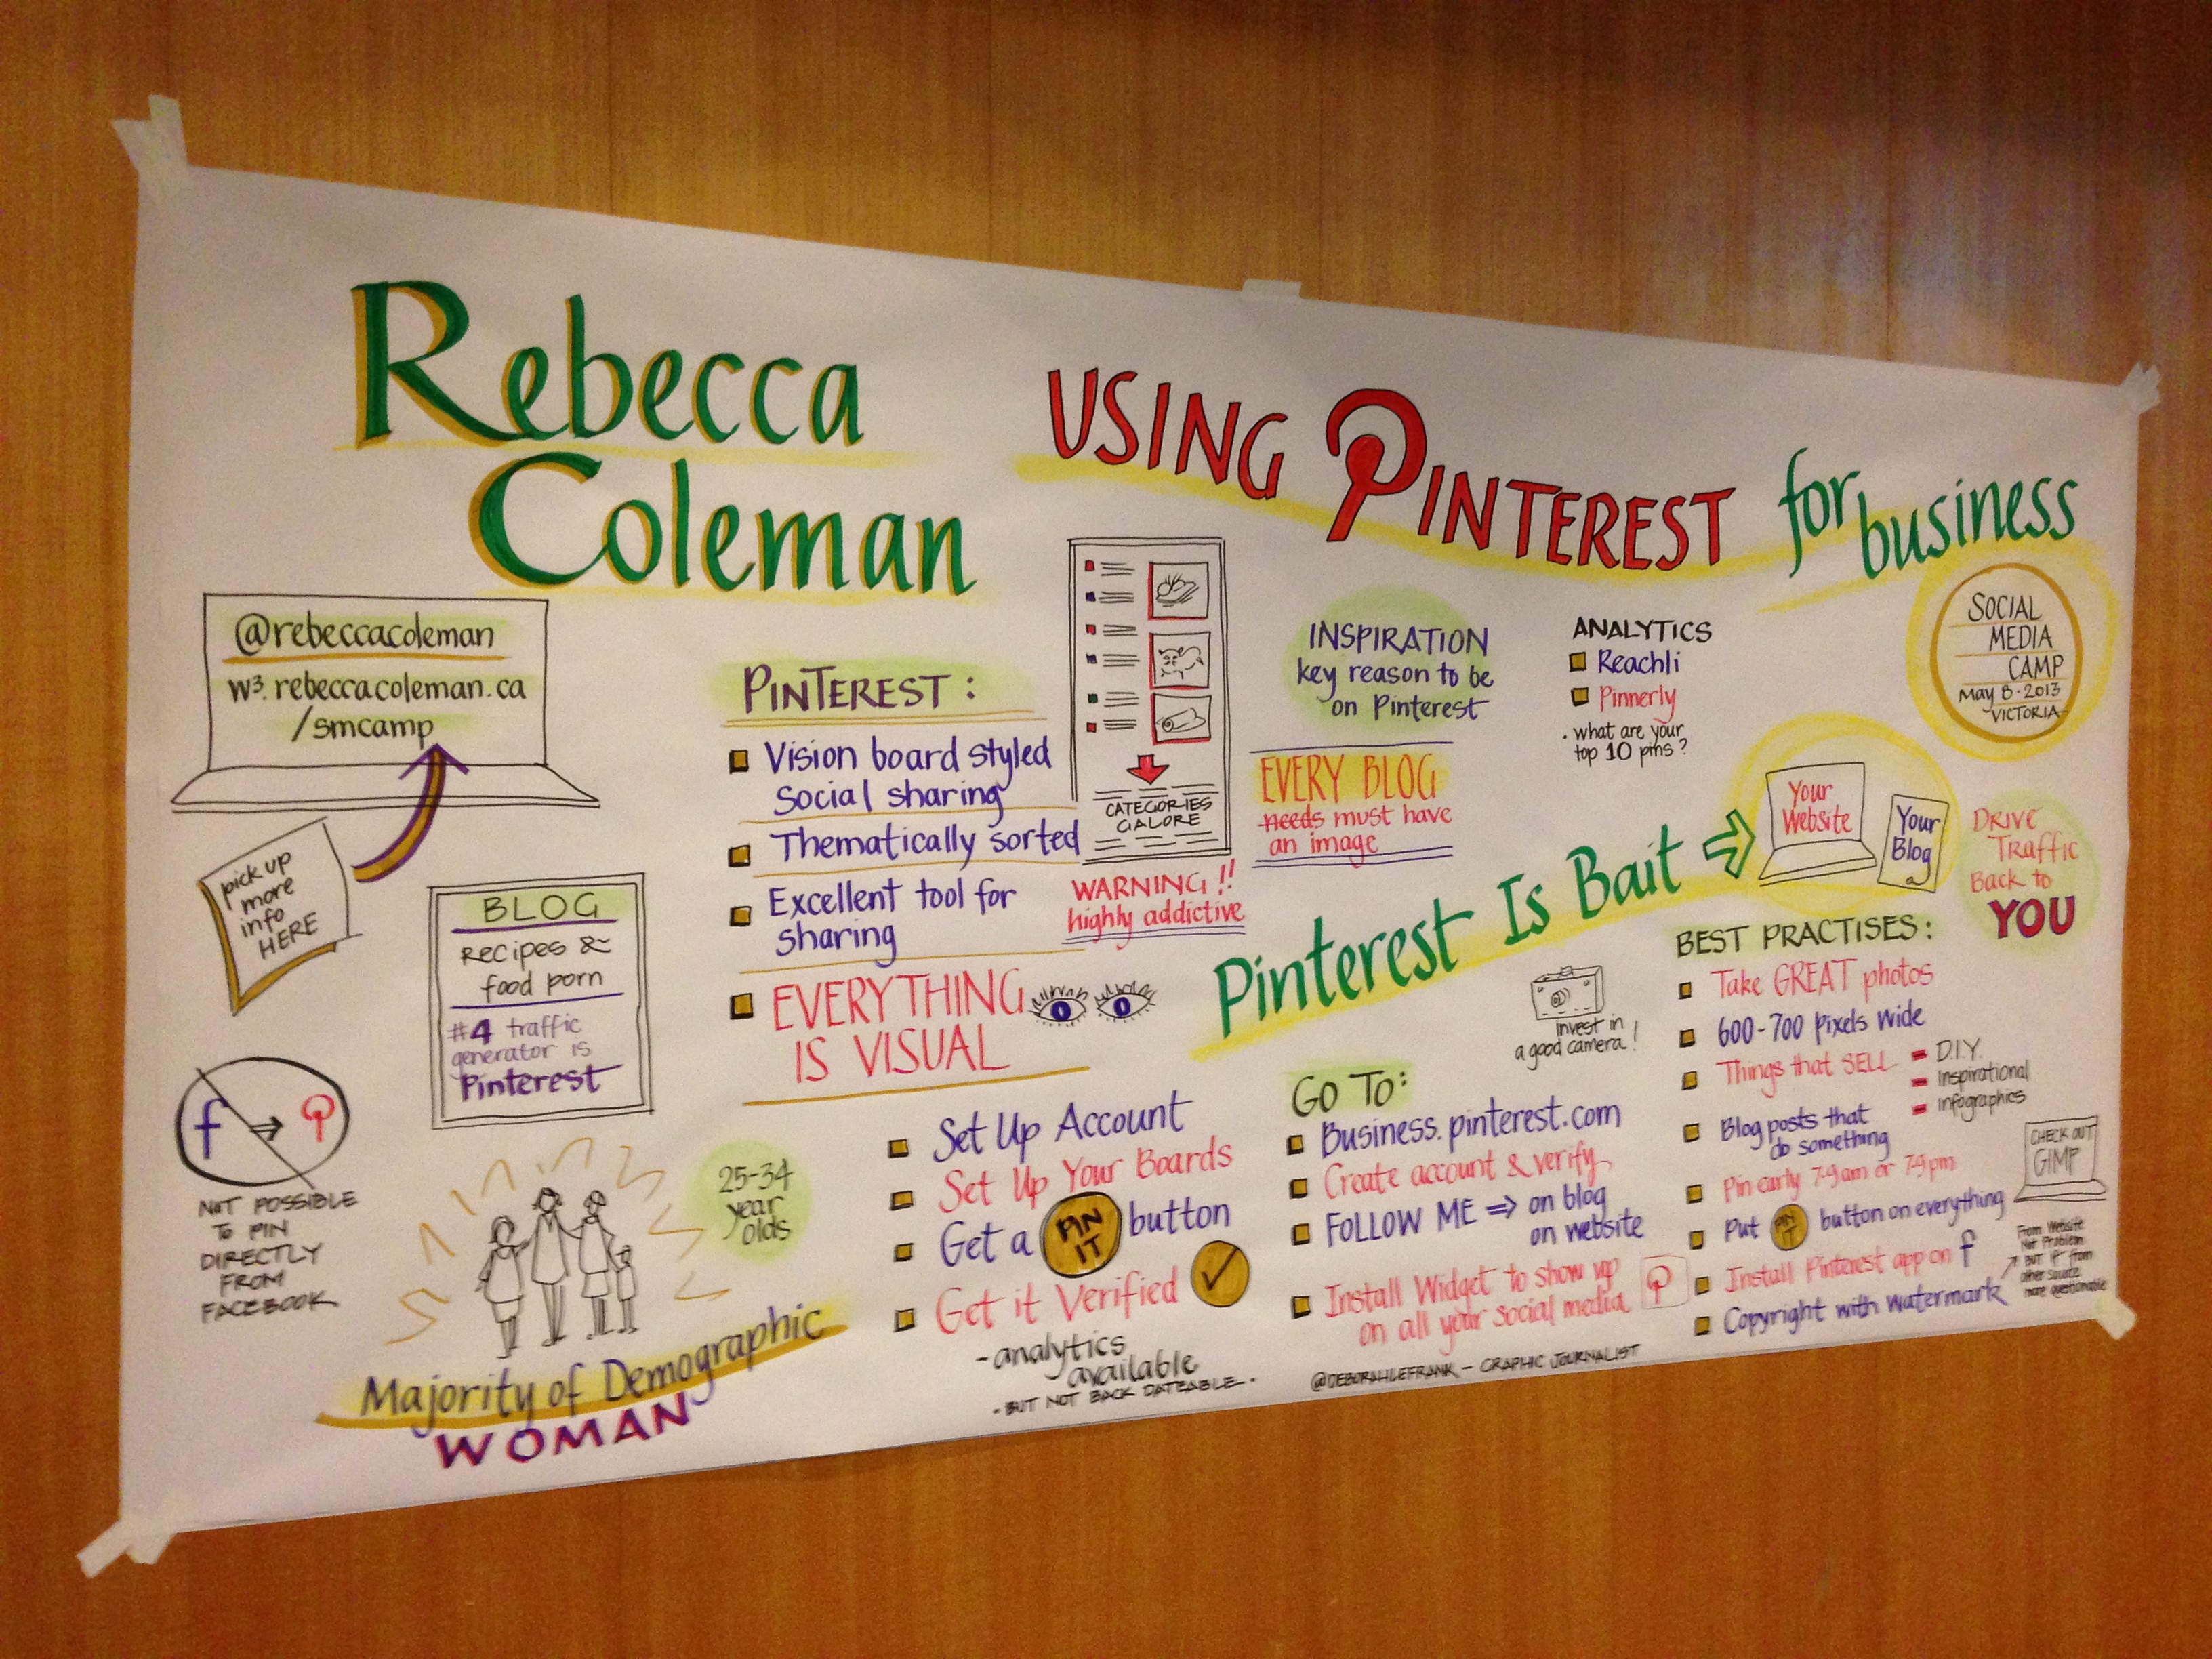 Rebecca
Coleman
USING PINTEREST for business
SOCIAL
MEDIA
CAMP
May 8·2013
VICTORIA
@rebeccacoleman
w³.rebeccacoleman.ca
/smcamp
pick up
more
info
HERE
BLOG
Recipes &
food porn
#4 traffic
generator is
Pinterest
f ⇒
NOT POSSIBLE
TO PIN
DIRECTLY
FROM
FACEBOOK
25-34
year
olds
Majority of Demographic
WOMAN
PINTEREST:
Vision board styled
Social sharing
Thematically sorted
Excellent tool for
sharing
EVERYTHING
IS VISUAL
CATEGORIES
GALORE
WARNING!!
highly addictive
Set Up Account
Set Up Your Boards
Get a PIN IT button
Get it Verified ✓
-analytics
available
· BUT NOT BACK DATEABLE.
INSPIRATION
key reason to be
on Pinterest
EVERY BLOG
needs must have
an image
ANALYTICS
Reachli
Pinnerly
· what are your
top 10 pins?
Pinterest Is Bait ⇒
Your
Website
Your
Blog
DRIVE
Traffic
Back to
YOU
invest in
a good camera!
GO TO:
Business.pinterest.com
Create account & verify
FOLLOW ME ⇒ on blog
on website
Install Widget to show up
on all your social media
@DEBORAHLEFRANK - GRAPHIC JOURNALIST
BEST PRACTISES:
Take GREAT photos
600-700 pixels wide
Things that SELL
- D.I.Y.
- Inspirational
- infographics
Blog posts that
do something
Pin early 7-9am or 7-9pm
Put PIN IT button on everything
Install Pinterest app on f
Copyright with watermark
CHECK OUT
GIMP
From Website
Not Problem
BUT if from
other source
more questionable